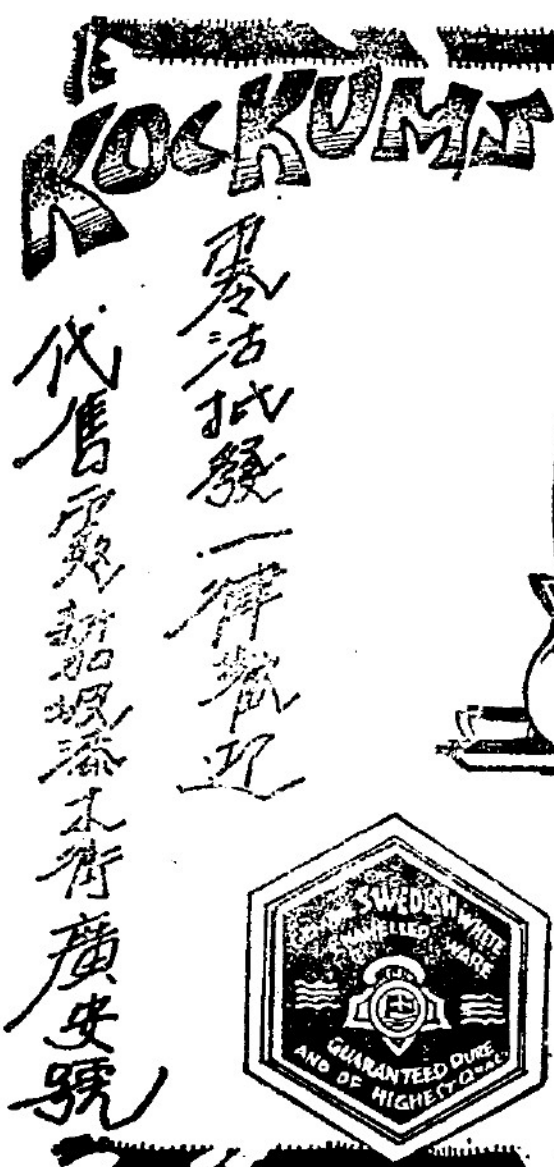 KOCKUMS
零沽批發一律歡迎
代售處新加坡漆木街廣安號
SWEDISH WHITE
ENAMELLED WARE
GUARANTEED PURE
AND OF HIGHEST QUAL.